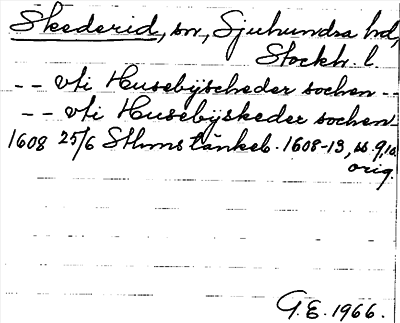 Skederid, sn, Sjuhundra hd,
Stockh. l.
-- vti Husebyscheder sochen --
-- vti Husebyskeder sochen
1608 25/6 Sthms tänkeb. 1608-13, s. 9, 10
orig.
G.E. 1966.